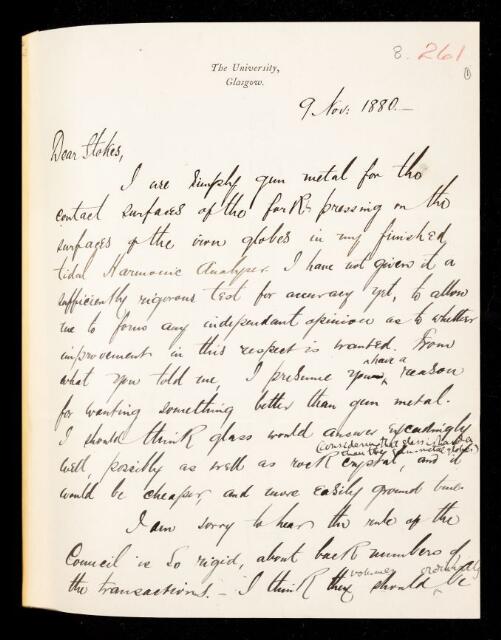 8. 261
(1)
The University,
Glasgow.
9 Nov. 1880.—
Dear Stokes,
I use simply gun metal for the
contact surfaces of the forks pressing on the
surfaces of the iron globes in my finished
tidal Harmonic Analyser. I have not given it a
sufficiently rigorous test for accuracy yet, to allow
me to form any independant opinion as to whether
improvement in this respect is wanted. From
what you told me, I presume you have a reason
for wanting something better than gun metal.
I should think glass would answer exceedingly
(considering that glass is harder
than the gun metal globes)
well, possibly as well as rock crystal, and it
would be cheaper and more easily ground true.
I am sorry to hear the rule of the
Council is so rigid, about back numbers of
the transactions. — I think the volumes should ordinarily be